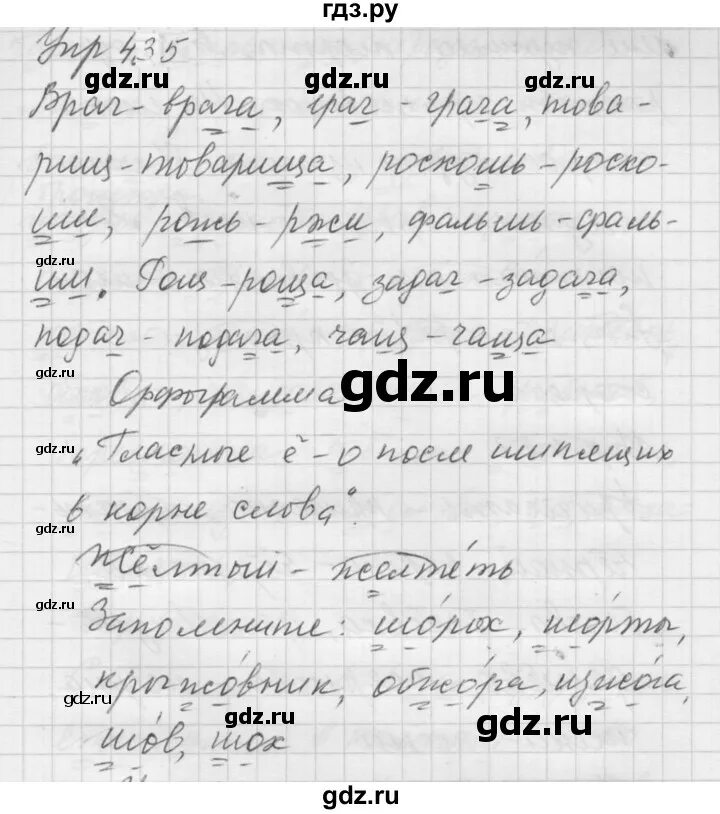 гдз.ру
Упр 435
gdz.ru gdz.ru gdz.ru
Врач - врача, грач - грача, това-
рищ - товарища, роскошь - роско-
gdz.ru
ши, рожь - ржи, фальшь - фаль-
gdz.ru gdz.ru gdz.ru
ши. Рощ - роща, задач - задача,
подач - подача, чащ - чаща
gdz.ru
Орфограмма
gdz.ru
„Гласные ё - о после шипящих
gdz.ru
в корне слова“.
gdz.ru gdz.ru gdz.ru
Жёлтый - желте́ть
gdz.ru
Запомените: шо́рох, шо́рты,
крыжо́вник, обжо́ра, изжо́га,
gdz.ru gdz.ru gdz.ru
шо́в, шок
gdz.ru